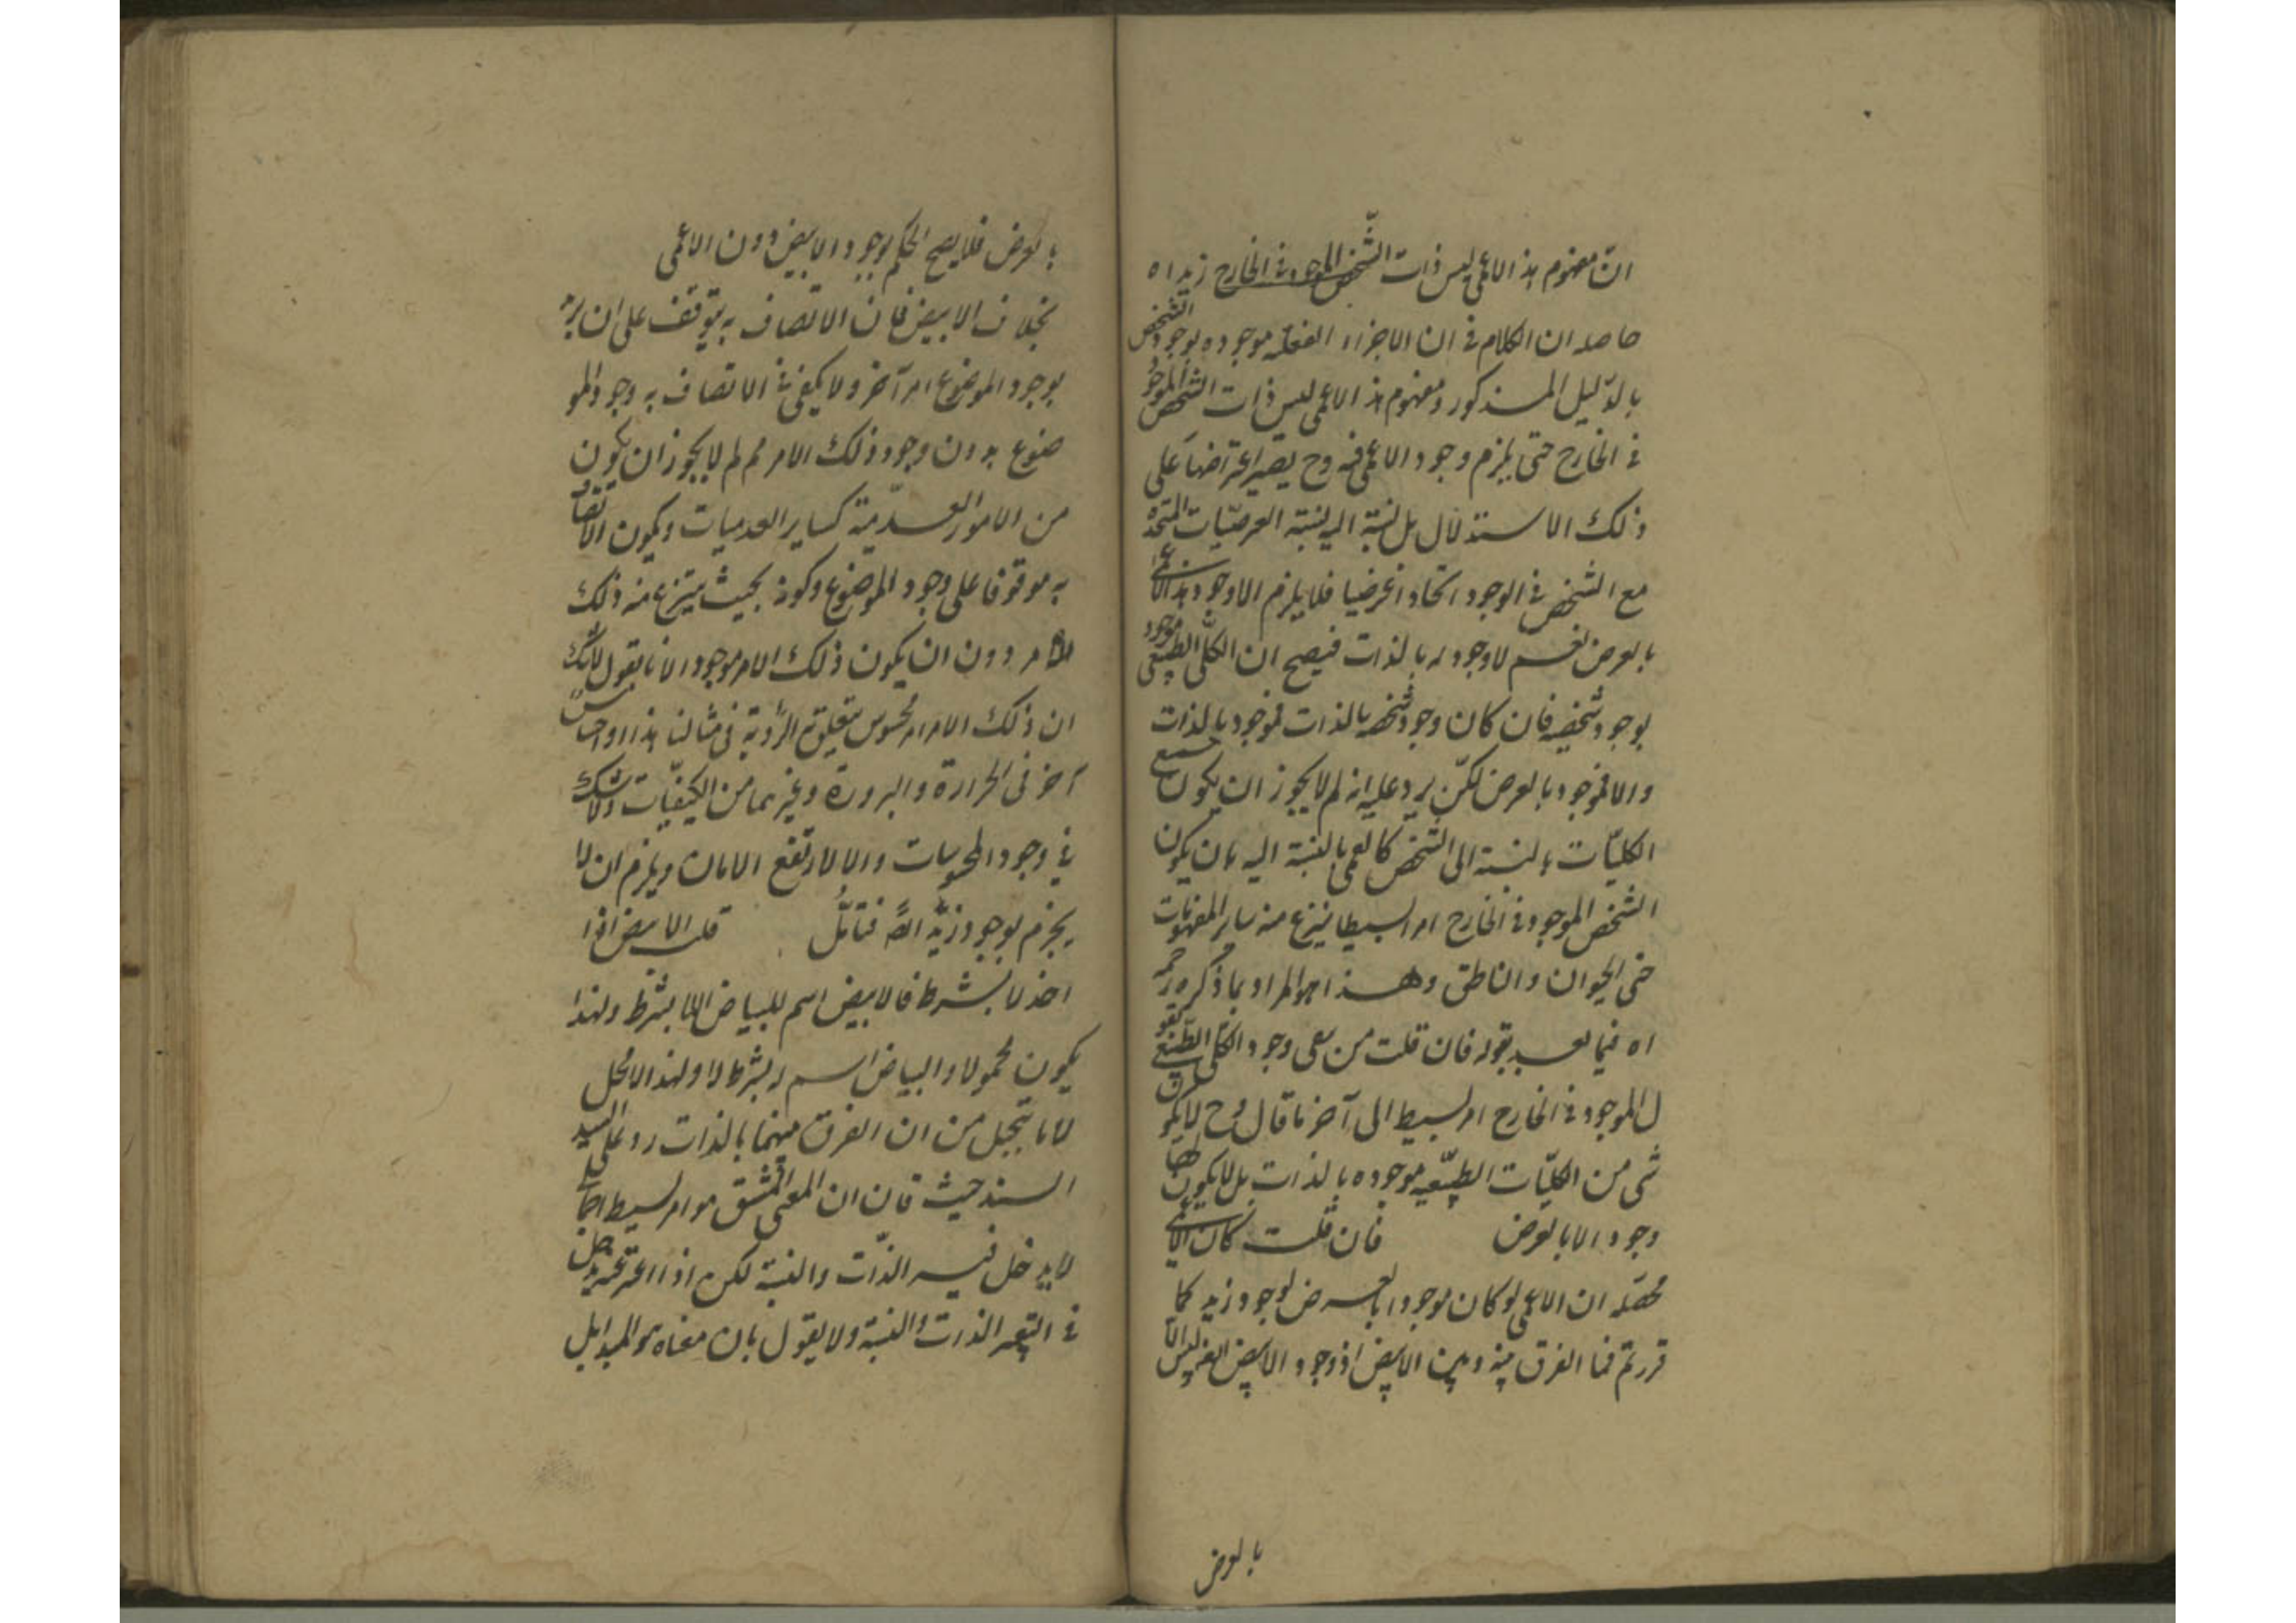 انّ مفهوم هذا الاعمى ليس ذات الشّخص الموجود فى الخارج زيد اه
حاصله ان الكلام فى ان الاجزاء العقلية موجوده بوجود الشخص
بالدّليل المذكور ومفهوم هذا الاعمى ليس ذات الشخص الموجود
فى الخارج حتى يلزم وجود الاعمى فيه وح يصير اعتراضها على
ذلك الاستدلال بل نسبة اليه نسبة العرضيّات المتحدة
مع الشخص فى الوجود اتحادا عرضيا فلا يلزم الا وجود هذا الاعمى
بالعرض نعم لا وجود له بالذات فيصح ان الكلّى الطبيعى موجود
بوجود شخصه فان كان وجود شخصه بالذات فموجود بالذات
والا فموجود بالعرض لكنّ يرد عليه انه لم لا يجوز ان يكون جميع
الكليّات بالنسبة الى الشخص كالعمى بالنسبة اليه بان يكون
الشخص الموجود فى الخارج امرا بسيطا ينتزع منه ساير المفهومات
حتى الحيوان والناطق وهذا هو المراد بما ذكره رحمه
اه فيما بعد بقوله فان قلت من نفى وجود الكلى الطّبيعى يقو
ل الموجود فى الخارج امر بسيط الى آخر ما قال وح لا يكون
شى من الكليّات الطبيّعيه موجوده بالذات بل لا يكون لها
وجود الا بالعرض فان قلت كان الاعمى
محصّله ان الاعمى لو كان موجودا بالعرض لوجود زيد كما
قررتم فما الفرق بينه وبين الابيض اذ وجود الابيض ايضا ليس الا
بالعرض
بالعرض فلا يصح الحكم بوجود الابيض دون الاعمى
بخلاف الابيض فان الاتصاف به يتوقف على ان يزيد
بوجود الموضوع امر آخر ولا يكفى فى الاتصاف به وجود المو
ضوع بدون وجود ذلك الامر ثم لم لا يجوز ان يكون
من الامور العدميّة كساير العدميات ويكون الاتصاف
به موقوفا على وجود الموضوع وكونه بحيث ينتزع منه ذلك
الامر دون ان يكون ذلك الامر موجودا لانا نقول لا شك
ان ذلك الامر امر محسوس يتعلق به الرّوية فى مثالنا هذا او احساس
آخر فى الحرارة والبرودة وغيرهما من الكيفيّات ولا شك
فى وجود المحسوسات والا لارتفع الامان ويلزم ان لا
يجزم بوجود زيد ايضا فتأمّل قلت الابيض اذا
اخذ لا بشرط فالابيض اسم للبياض لا بشرط ولهذا
يكون محمولا والبياض اسم له بشرط لا ولهذا لا يحمل
لا ما يتخيل من ان الفرق بينهما بالذات رد على السيد
السند حيث قال ان المعنى المشتق هو امر بسيط اجمالى
لا يدخل فيه الذّات والنسبة لكن اذا اعتبر تحصيله يدخل
فى التعبير الذات والنسبة ولا يقول بان معناه هو المبدأ بل